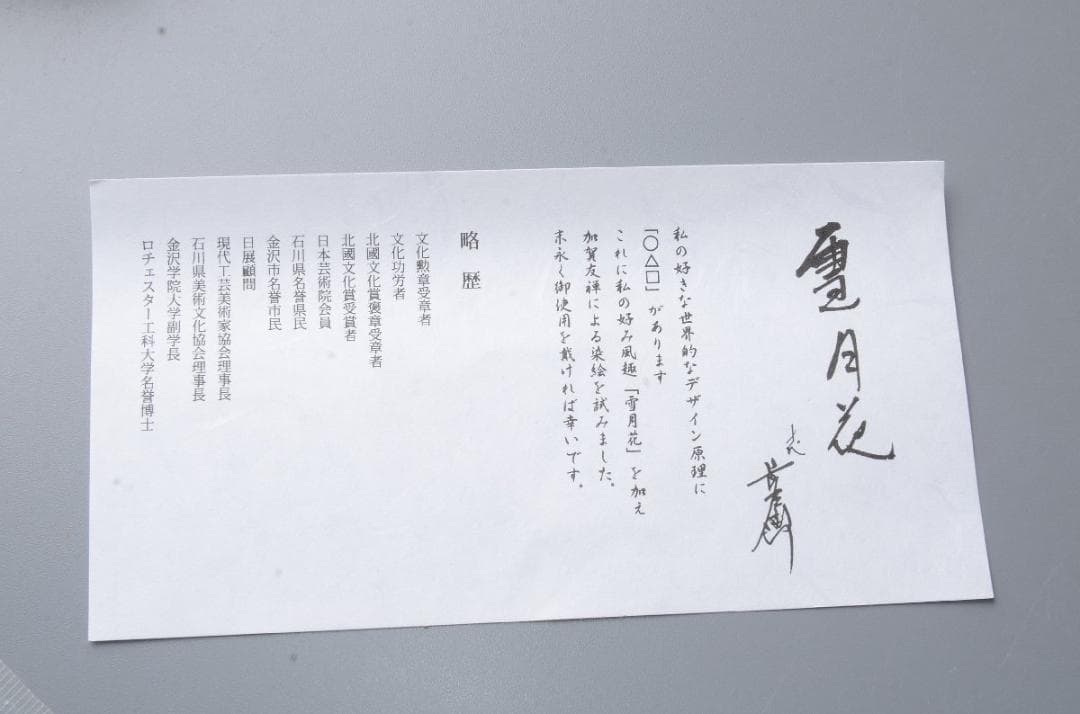 雪月花
私の好きな世界的なデザイン原理に
「○△□」があります
これに私の好み風趣「雪月花」を加え
加賀友禅による染絵を試みました。
末永く御使用を戴ければ幸いです。
略歴
文化勲章受章者
文化功労者
北國文化賞褒章受章者
北國文化賞受賞者
日本芸術院会員
石川県名誉県民
金沢市名誉市民
日展顧問
現代工芸美術家協会理事長
石川県美術文化協会理事長
金沢学院大学副学長
ロチェスター工科大学名誉博士